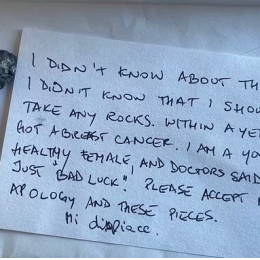 I DIDN'T KNOW ABOUT TH
I DIDN'T KNOW THAT I SHOU
TAKE ANY ROCKS. WITHIN A YE
GOT A BREAST CANCER. I AM A YO
HEALTHY FEMALE, AND DOCTORS SAID
JUST "BAD LUCK". PLEASE ACCEPT
APOLOGY AND THESE PIECES.
Mi dispiace.